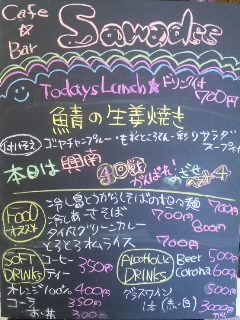 Cafe ☆ Bar Sawadee
Today's Lunch☆ドリンク付
700円
鯖の生姜焼き
付け合せ ゴーヤチャンプルー・もずとろろん・彩りサラダ
スープ付
本日は興南
4回戦
がんばれ!
めざせベスト4
Food オススメ
冷し島とうがらし 麺 700円
冷しあーさそば 700円
タイ風グリーンカレー
とろとろオムライス 700円
SOFT DRINKS
コーヒー 350円
ティー
オレンジ100% 400円
コーラ 350円
300円
ALCOHOLIC DRINKS
Beer 500円
Corona 600円
グラスワイン 500円
1本(赤・白) 3000円